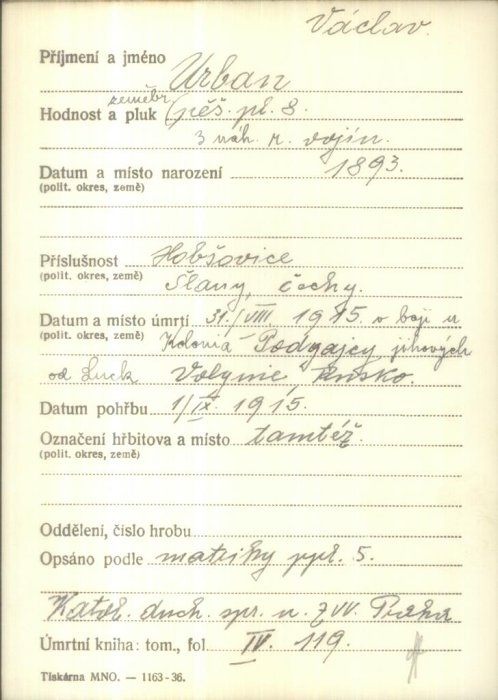 Václav.
Příjmení a jméno Urban
zeměbr.
Hodnost a pluk pěš. pl. 8.
3 náh. r. vojín.
Datum a místo narození 1893.
(polit. okres, země)
Příslušnost Hobšovice
(polit. okres, země) Slaný, Čechy.
Datum a místo úmrtí 31./VIII. 1915. v boji u
(polit. okres, země) Kolonia Podgajcy jihových.
od Luck Volynie, Rusko.
Datum pohřbu 1/IX. 1915.
Označení hřbitova a místo tamtéž.
(polit. okres, země)
Oddělení, číslo hrobu
Opsáno podle matriky ppl. 5.
Katol. duch. spr. u ZVV. Praha
Úmrtní kniha: tom., fol. IV. 119.
Tiskárna MNO. — 1163-36.